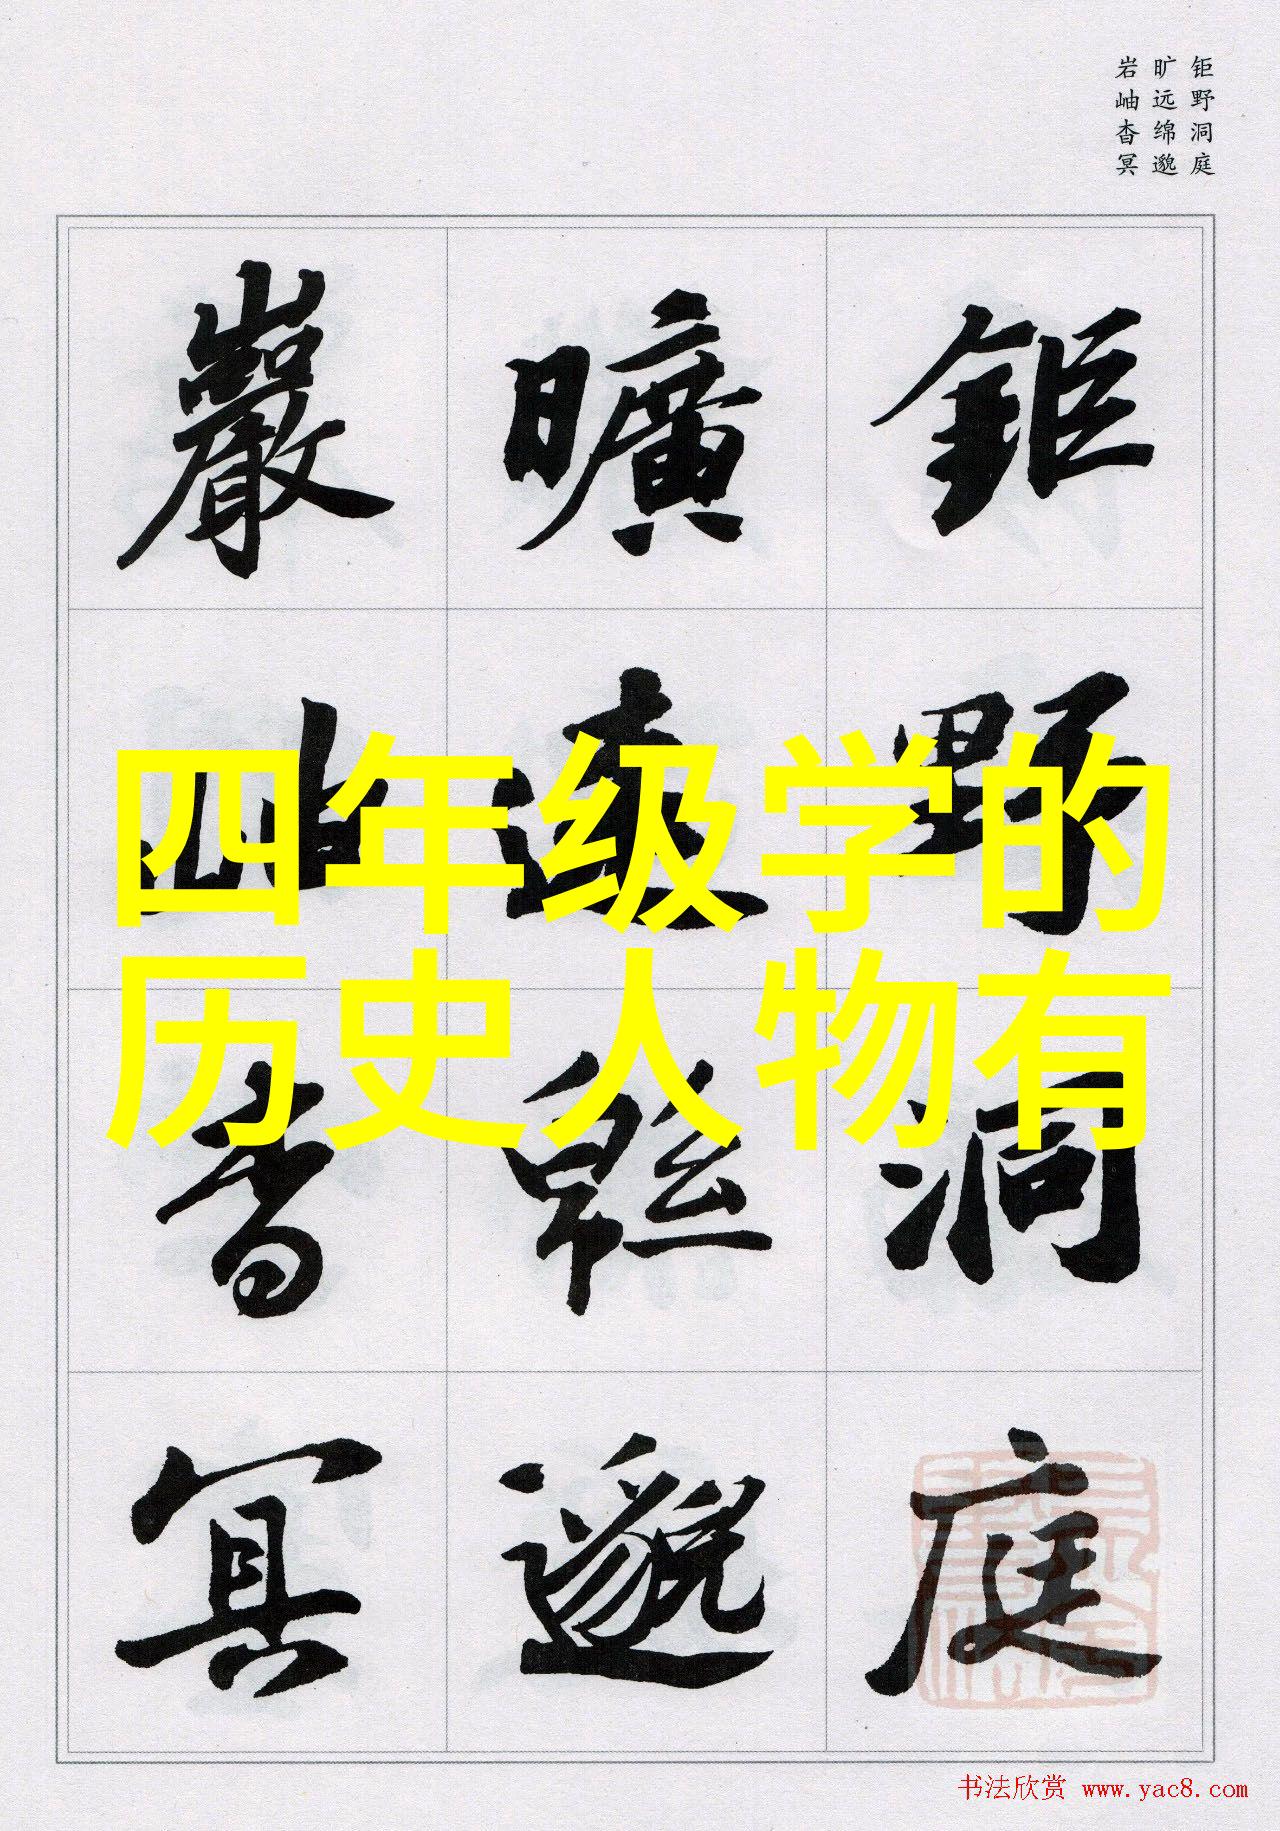 钜野洞庭
旷远绵邈
岩岫杳冥
鉅野洞庭
曠遠緜邈
巖岫杳冥
四年级学的
历史人物有
书法欣赏 www.yac8.com